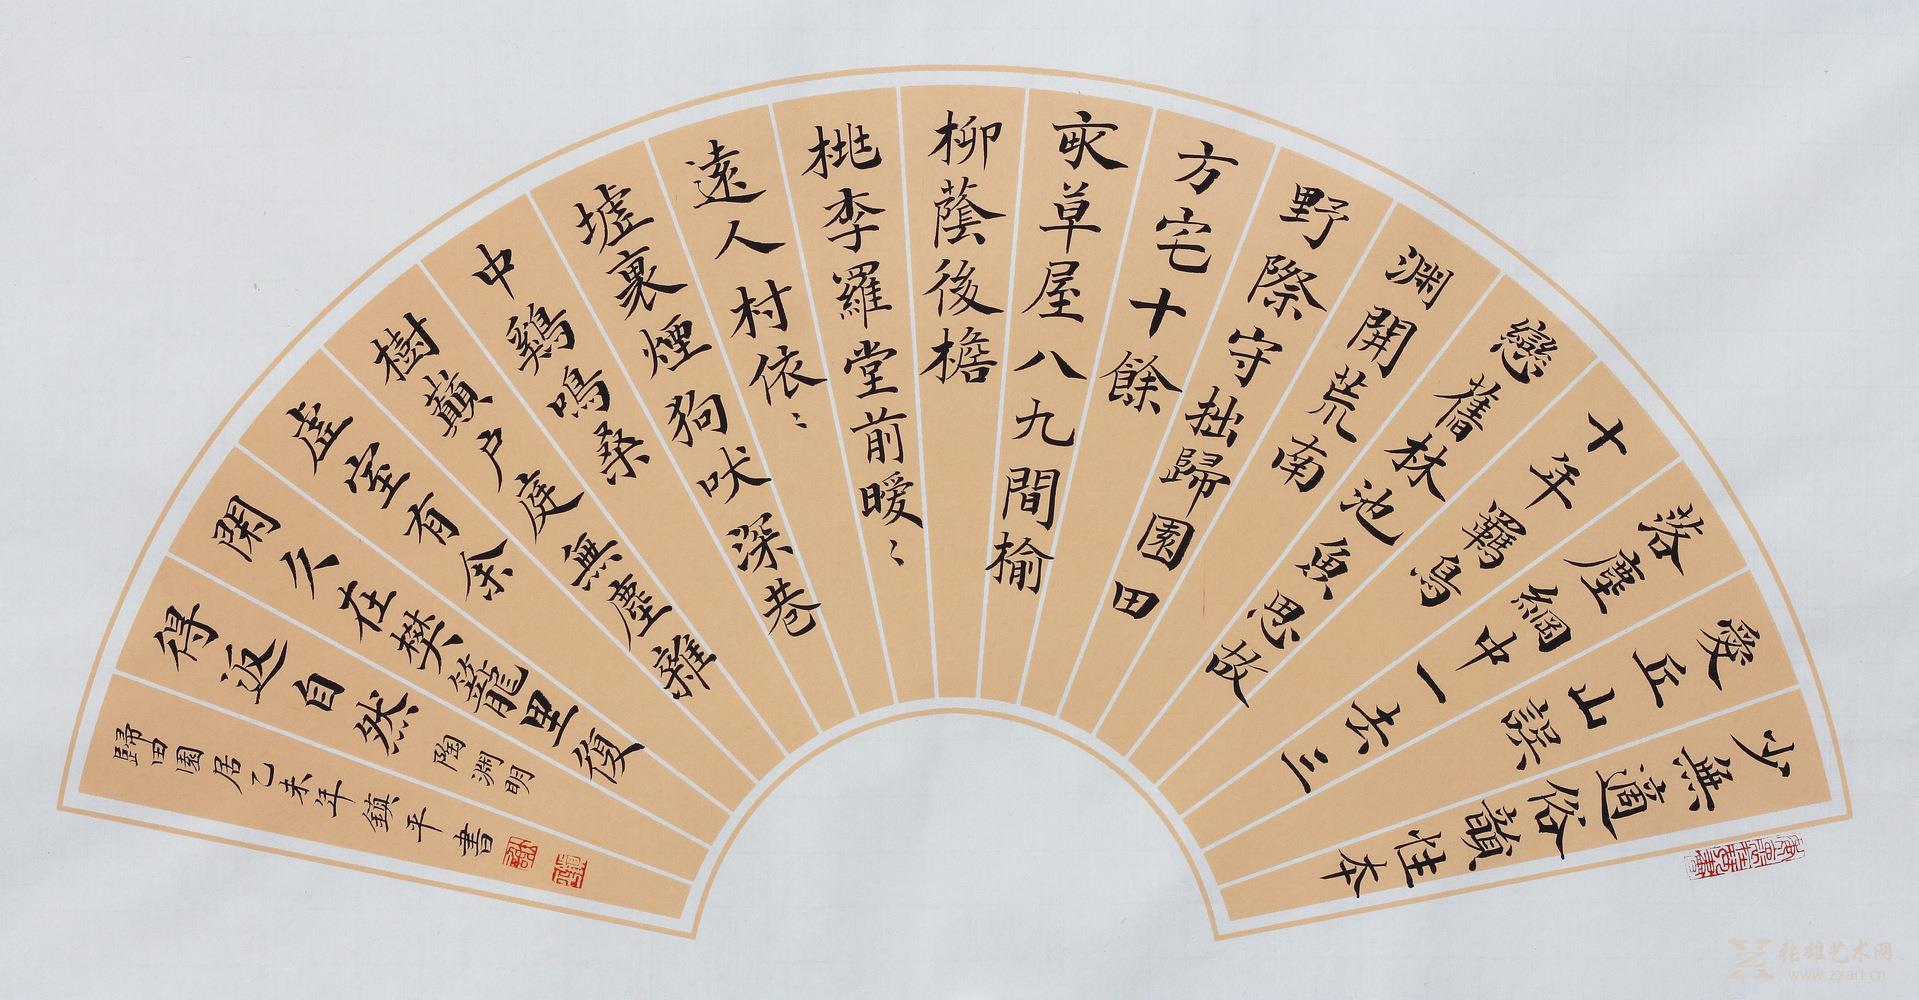 少無適俗韻性本
愛丘山誤
落塵網中一去三
十年羈鳥
戀舊林池魚思故
淵開荒南
野際守拙歸園田
方宅十餘
畝草屋八九間榆
柳蔭後檐
桃李羅堂前曖〻
遠人村依〻
墟裏煙狗吠深巷
中鷄鳴桑
樹巔户庭無塵雜
虛室有余
閑久在樊籠里復
得返自然 陶淵明
歸田園居乙未年鎮平書
张雄艺术网
www.zxart.cn